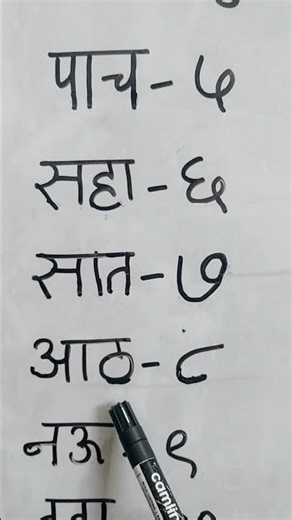 पाच - ५
सहा - ६
सात - ७
आठ - ८
नऊ - ९
camlin